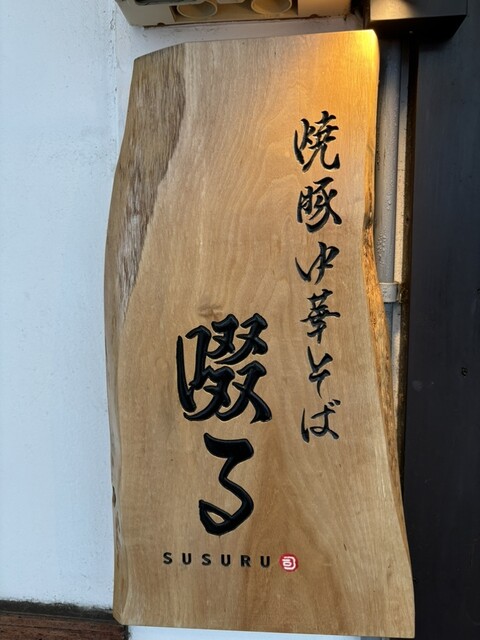 焼豚中華そば
啜る
SUSURU 司